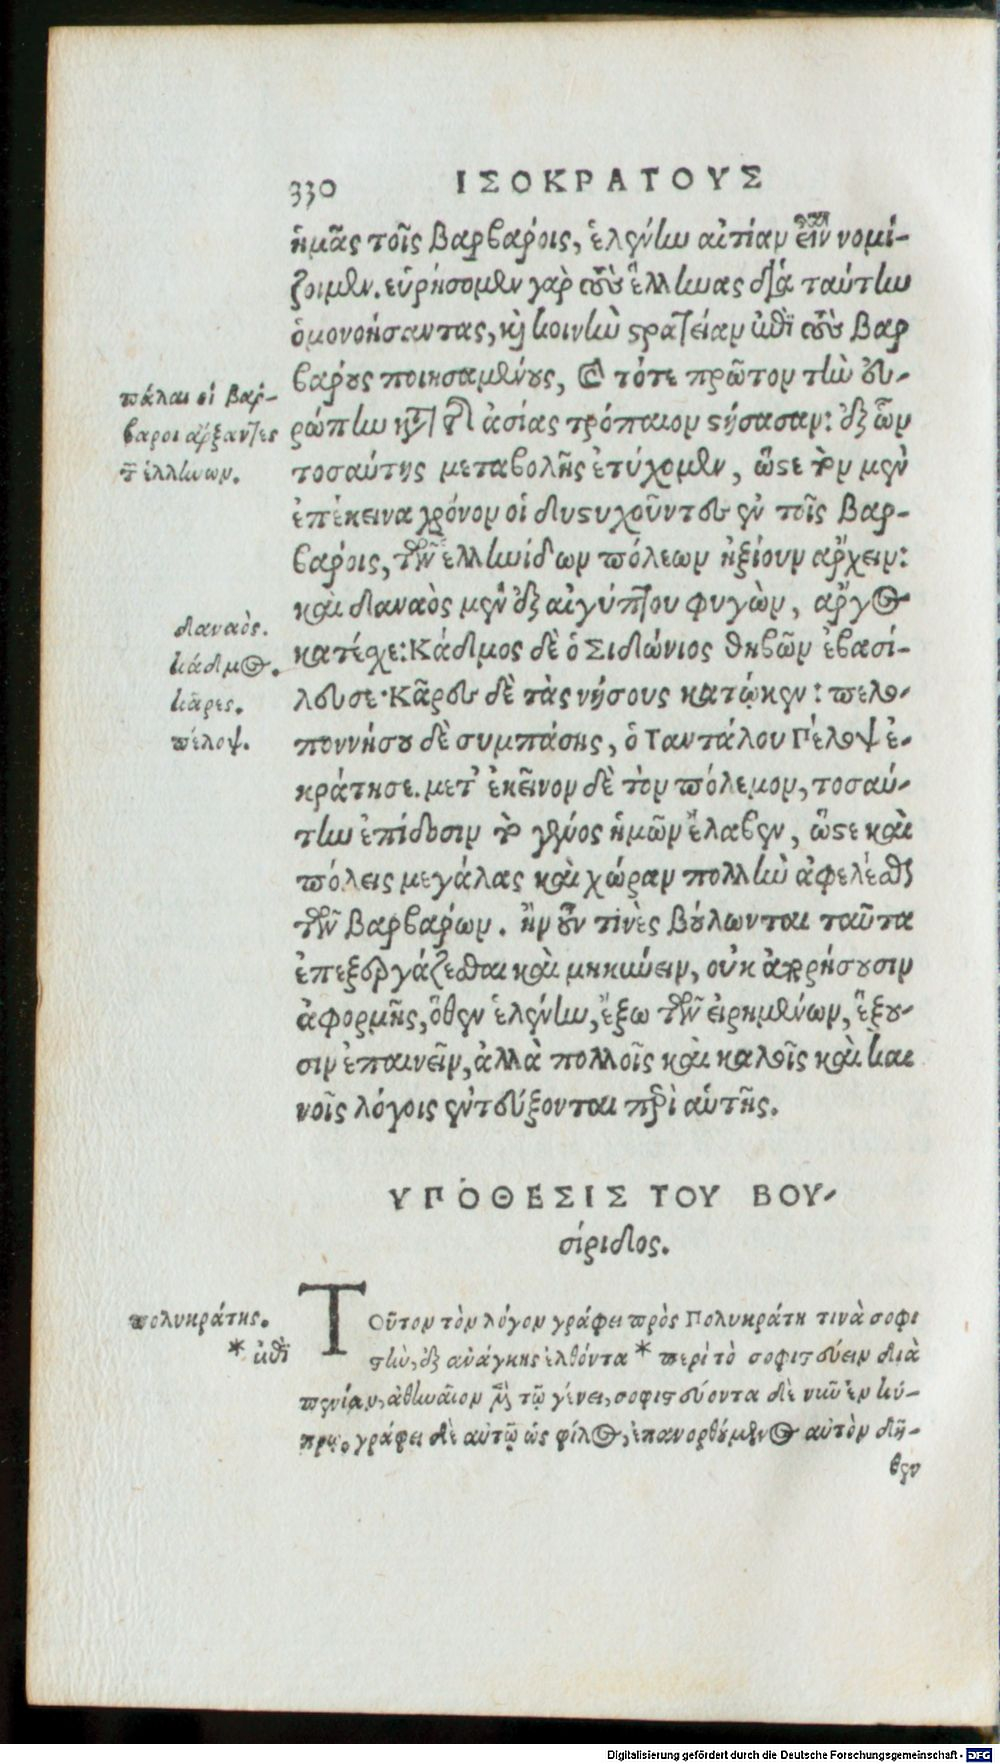 330 ΙΣΟΚΡΑΤΟΥΣ
ἡμᾶς τοῖς βαρβαροις, ἑλένην αἰτίαν εἶναι νομί-
ζοιμεν. εὑρήσομεν γὰρ τοὺς ἕλληνας δι᾽ ταύτην
ὁμονοήσαντας, καὶ κοινὴν στρατείαν ἐπὶ τοὺς βαρ
βάρους ποιησαμένους, καὶ τότε πρῶτον τὴν εὐ-
ρώπην κατὰ τῆς ἀσίας τρόπαιον στήσασαν: ἐξ ὧν
τοσαύτης μεταβολῆς ἐτύχομεν, ὥστε τὸν μὲν
ἐπέκεινα χρόνον οἱ δυστυχοῦντες ἐν τοῖς βαρ-
βάροις, τῶν ἑλληνίδων πόλεων ἠξίουν ἄρχειν:
καὶ δαναὸς μὲν ἐξ αἰγύπτου φυγὼν, ἄργος
κατέχε: Κάδμος δὲ ὁ Σιδώνιος θηβῶν ἐβασί-
λευσε· Κᾶρες δὲ τὰς νήσους κατῴκεν: πελο-
ποννήσου δὲ συμπάσης, ὁ Ταντάλου Πέλοψ ἐ-
κράτησε. μετ᾽ ἐκεῖνον δὲ τὸν πόλεμον, τοσαύ-
την ἐπίδοσιν τὸ γένος ἡμῶν ἔλαβεν, ὥστε καὶ
πόλεις μεγάλας καὶ χώραν πολλὴν ἀφελέσθαι
τῶν βαρβάρων. ἢν οὖν τινὲς βούλωνται ταῦτα
ἐπεξεργάζεσθαι καὶ μηκύνειν, οὐκ ἀπορήσουσιν
ἀφορμῆς, ὅθεν ἑλένην, ἔξω τῶν εἰρημένων, ἕξου-
σιν ἐπαινεῖν, ἀλλὰ πολλοῖς καὶ καλοῖς καὶ και
νοῖς λόγοις ἐντεύξονται περὶ αὐτῆς.
πάλαι οἱ βάρ-
βαροι ἄρξαντες
τ ἑλλήνων.
δαναὸς.
κάδμος.
κᾶρες.
πέλοψ.
ΥΠΟΘΕΣΙΣ ΤΟΥ ΒΟΥ-
σίριδος.
ΤΟῦτον τὸν λόγον γράφει πρὸς Πολυκράτη τινὰ σοφι
στὴν, ἐξ ἀνάγκης ἐλθόντα * περὶ τὸ σοφιστεύειν διὰ
πενίαν, ἀθηναῖον μὲν τῷ γένει, σοφιστεύοντα δὲ νῦν ἐν κύ-
πρῳ. γράφει δὲ αὐτῷ ὡς φίλος, ἐπανορθούμενος αὐτὸν δῆ-
θεν
πολυκράτης.
* ἐπὶ
Digitalisierung gefördert durch die Deutsche Forschungsgemeinschaft - DFG